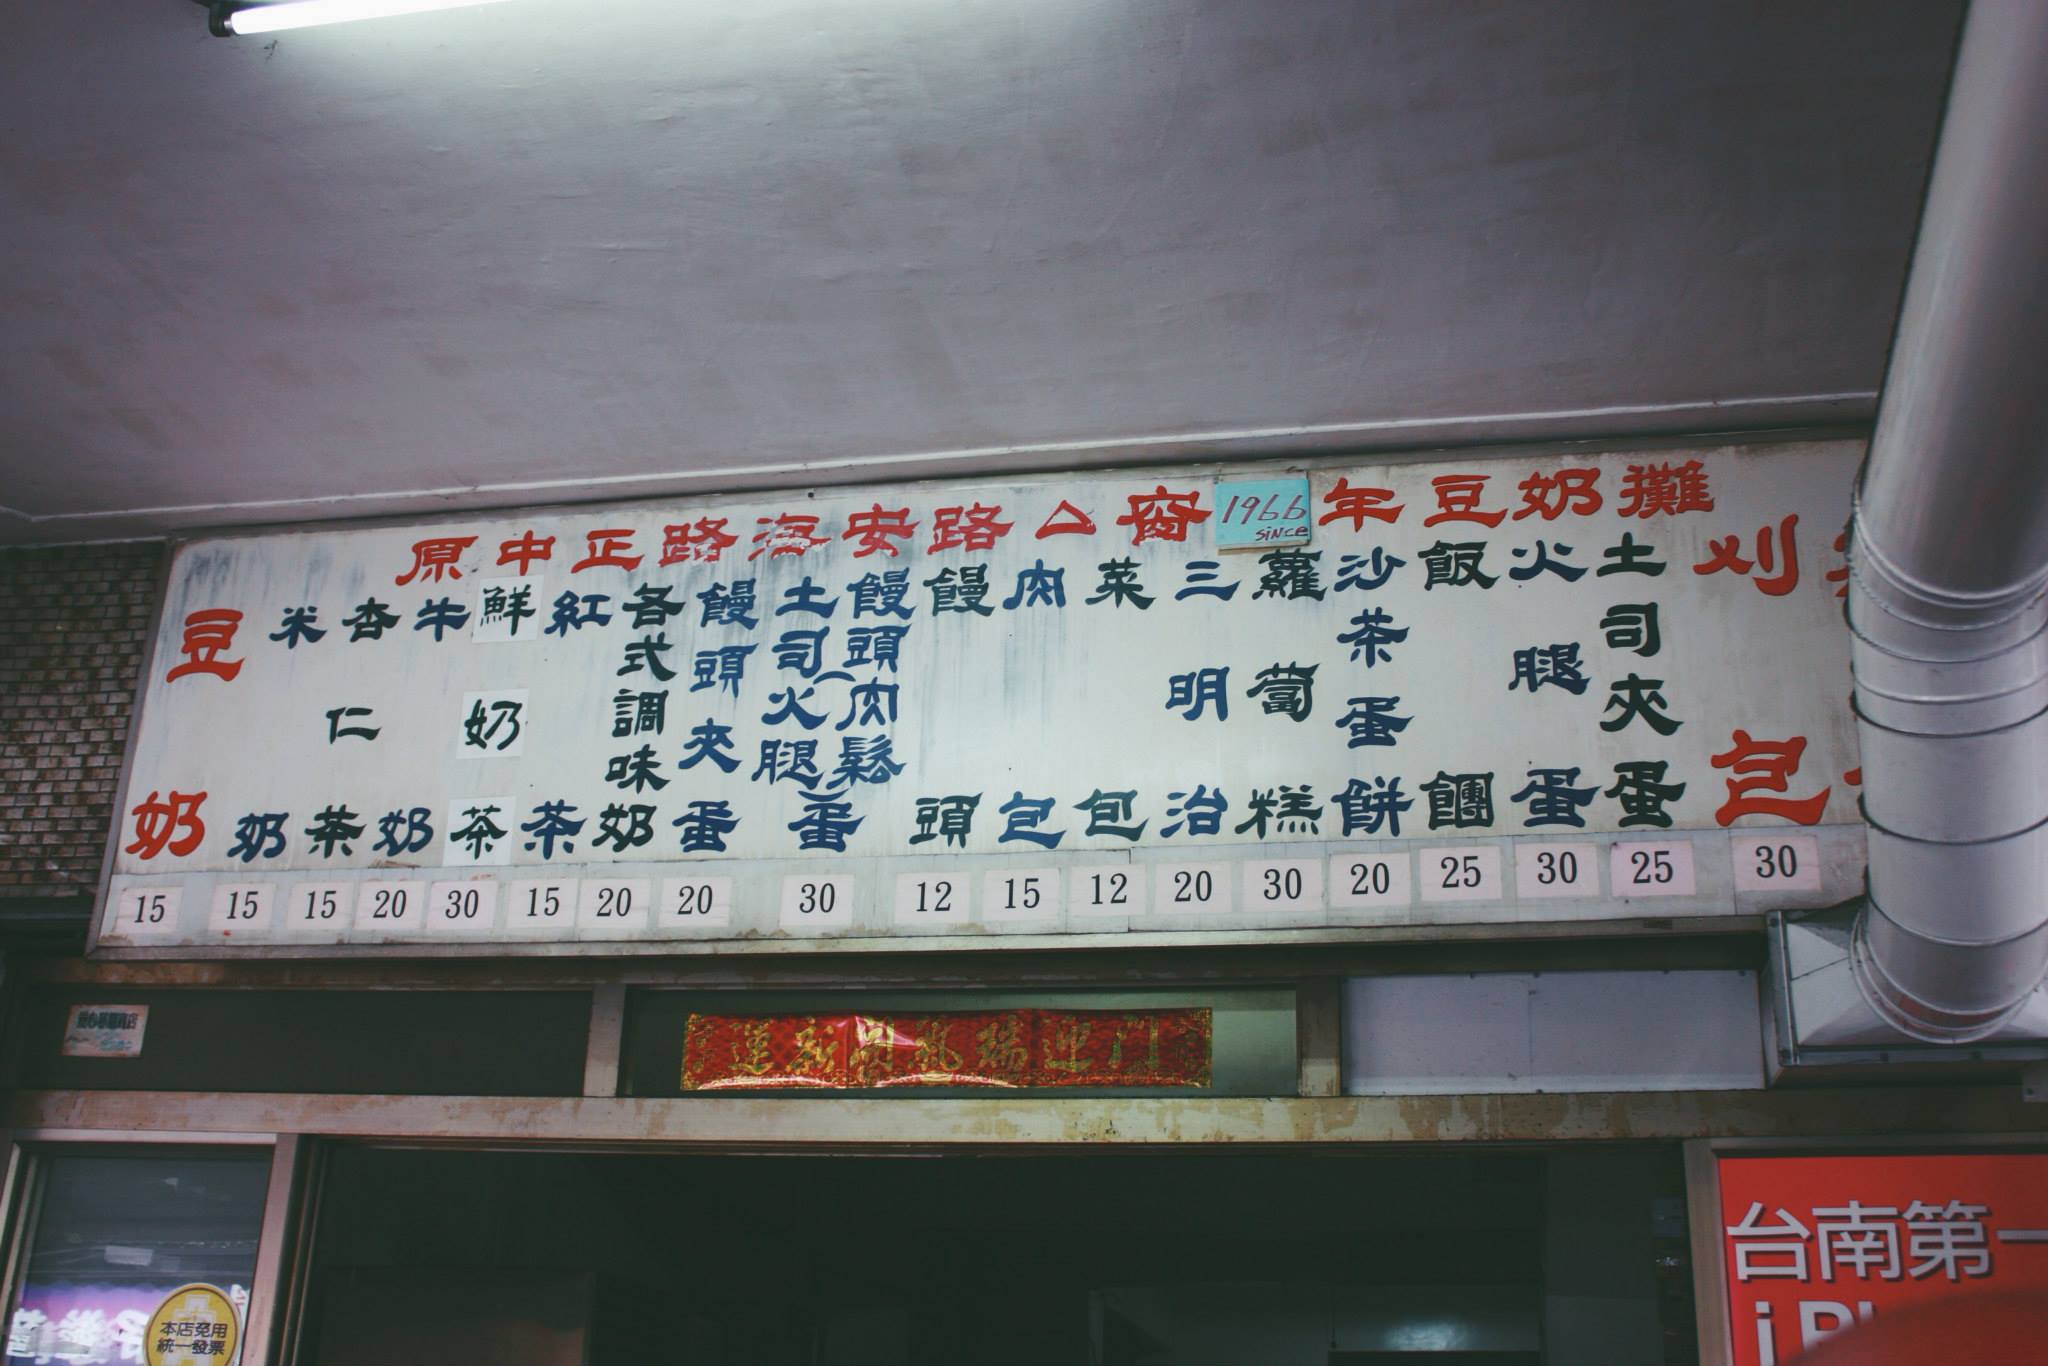 原中正路海安路△窗1966年豆奶攤
since
豆奶 15
米奶 15
杏仁茶 15
牛奶 20
鮮奶茶 30
紅茶 15
各式調味奶 20
饅頭夾蛋 20
土司火腿(饅頭肉鬆)蛋 30
饅頭 12
肉包 15
菜包 12
三明治 20
蘿蔔糕 30
沙茶蛋餅 20
飯糰 25
火腿蛋 30
土司夾蛋 25
刈包 30
門迎瑞氣開新運
本店免用
統一發票
台南第一